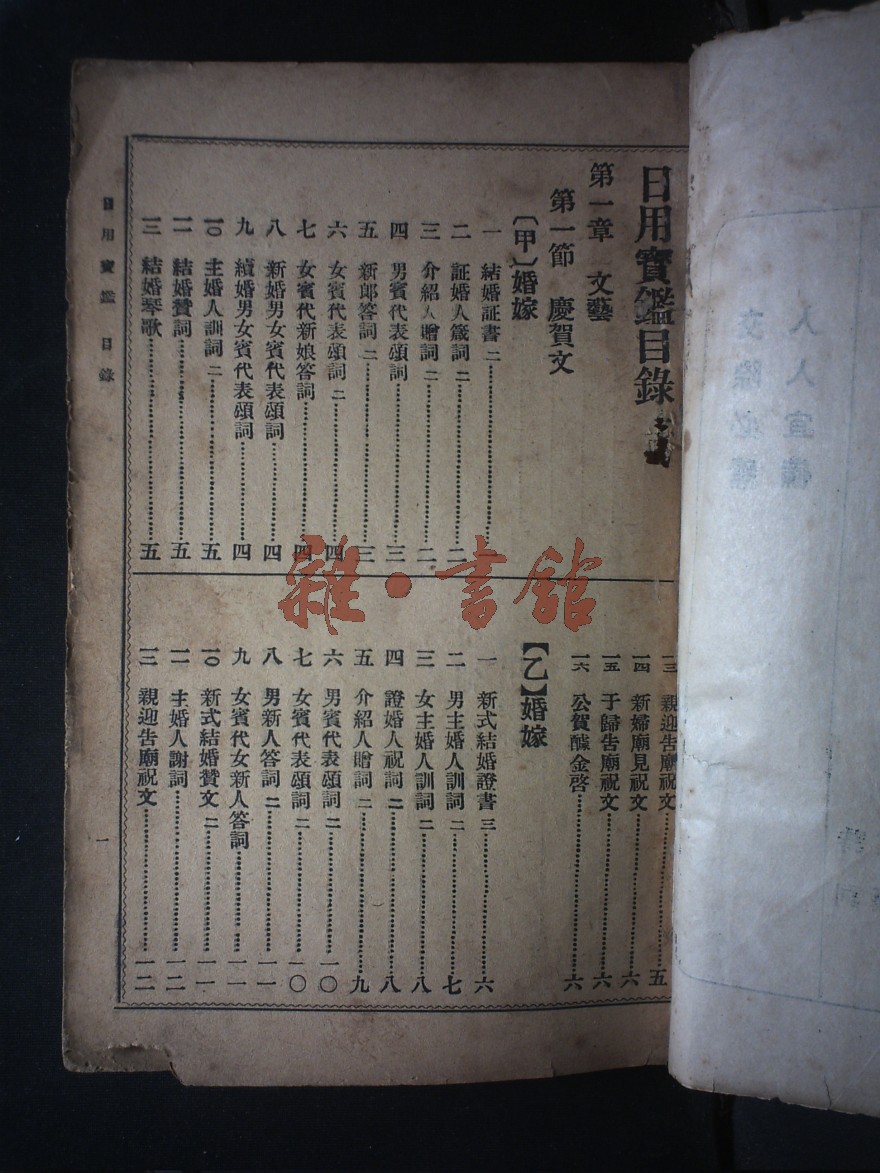 日用寶鑑目錄
第一章 文藝
第一節 慶賀文
〔甲〕婚嫁
一 結婚証書 二………二
二 証婚人箴詞 二………二
三 介紹人贈詞 二………二
四 男賓代表頌詞………三
五 新郎答詞 二………三
六 女賓代表頌詞 二………四
七 女賓代新娘答詞………四
八 新婚男女賓代表頌詞………四
九 續婚男女賓代表頌詞………四
一〇 主婚人訓詞 二………五
一一 結婚贊詞………五
一二 結婚琴歌………五
一三 親迎告廟祝文………五
一四 新婦廟見祝文………六
一五 于歸告廟祝文………六
一六 公賀醵金啓………六
【乙】婚嫁
一 新式結婚證書 三………六
二 男主婚人訓詞 二………七
三 女主婚人訓詞 二………八
四 證婚人祝詞 二………八
五 介紹人贈詞 二………九
六 男賓代表頌詞 二………一〇
七 女賓代表頌詞 二………一〇
八 男新人答詞 二………一一
九 女賓代女新人答詞………一一
一〇 新式結婚贊文 二………一一
一一 主婚人謝詞………一二
一二 親迎告廟祝文………一二
日用寶鑑 目錄
一
雜·書館
人人宜備